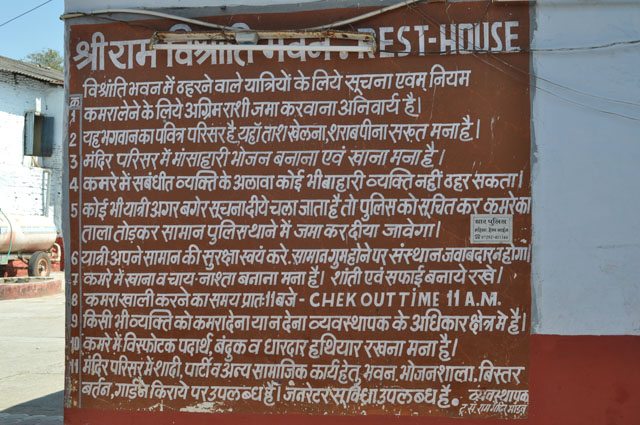 श्री राम विश्रांति भवन : REST-HOUSE
विश्रांति भवन में ठहरने वाले यात्रियों के लिये सूचना एवम् नियम
क्र
1 कमरा लेने के लिये अग्रिम राशी जमा करवाना अनिवार्य है।
2 यह भगवान का पवित्र परिसर है, यहाँ ताश खेलना, शराब पीना सख्त मना है।
3 मंदिर परिसर में मांसाहारी भोजन बनाना एवं खाना मना है।
4 कमरे में संबंधीत व्यक्ति के अलावा कोई भी बाहारी व्यक्ति नहीं ठहर सकता।
5 कोई भी यात्री अगर बगेर सूचना दीये चला जाता है तो पुलिस को सूचित कर कमरे का
ताला तोड़कर सामान पुलिस थाने में जमा कर दीया जावेगा।
धार पुलिस
6 यात्री अपने सामान की सुरक्षा स्वयं करे. सामान गुम होने पर संस्थान जवाबदार नहोगा।
7 कमरे में खाना व चाय-नाश्ता बनाना मना है। शांती एवं सफाई बनाये रखे।
8 कमरा खाली करने का समय प्रातः 11 बजे - CHEK OUT TIME 11 A.M.
9 किसी भी व्यक्ति को कमरा देना या न देना व्यवस्थापक के अधिकार क्षेत्र मे है।
10 कमरे में विस्फोटक पदार्थ, बंदुक व धारदार हथियार रखना मना है।
11 मंदिर परिसर में शादी, पार्टी व अन्य सामाजिक कार्य हेतु, भवन, भोजनशाला, बिस्तर
बर्तन, गार्डन किराये पर उपलब्ध हैं। जनरेटर सुविधा उपलब्ध है. व्यवस्थापक
श्री राम मंदिर मांडव